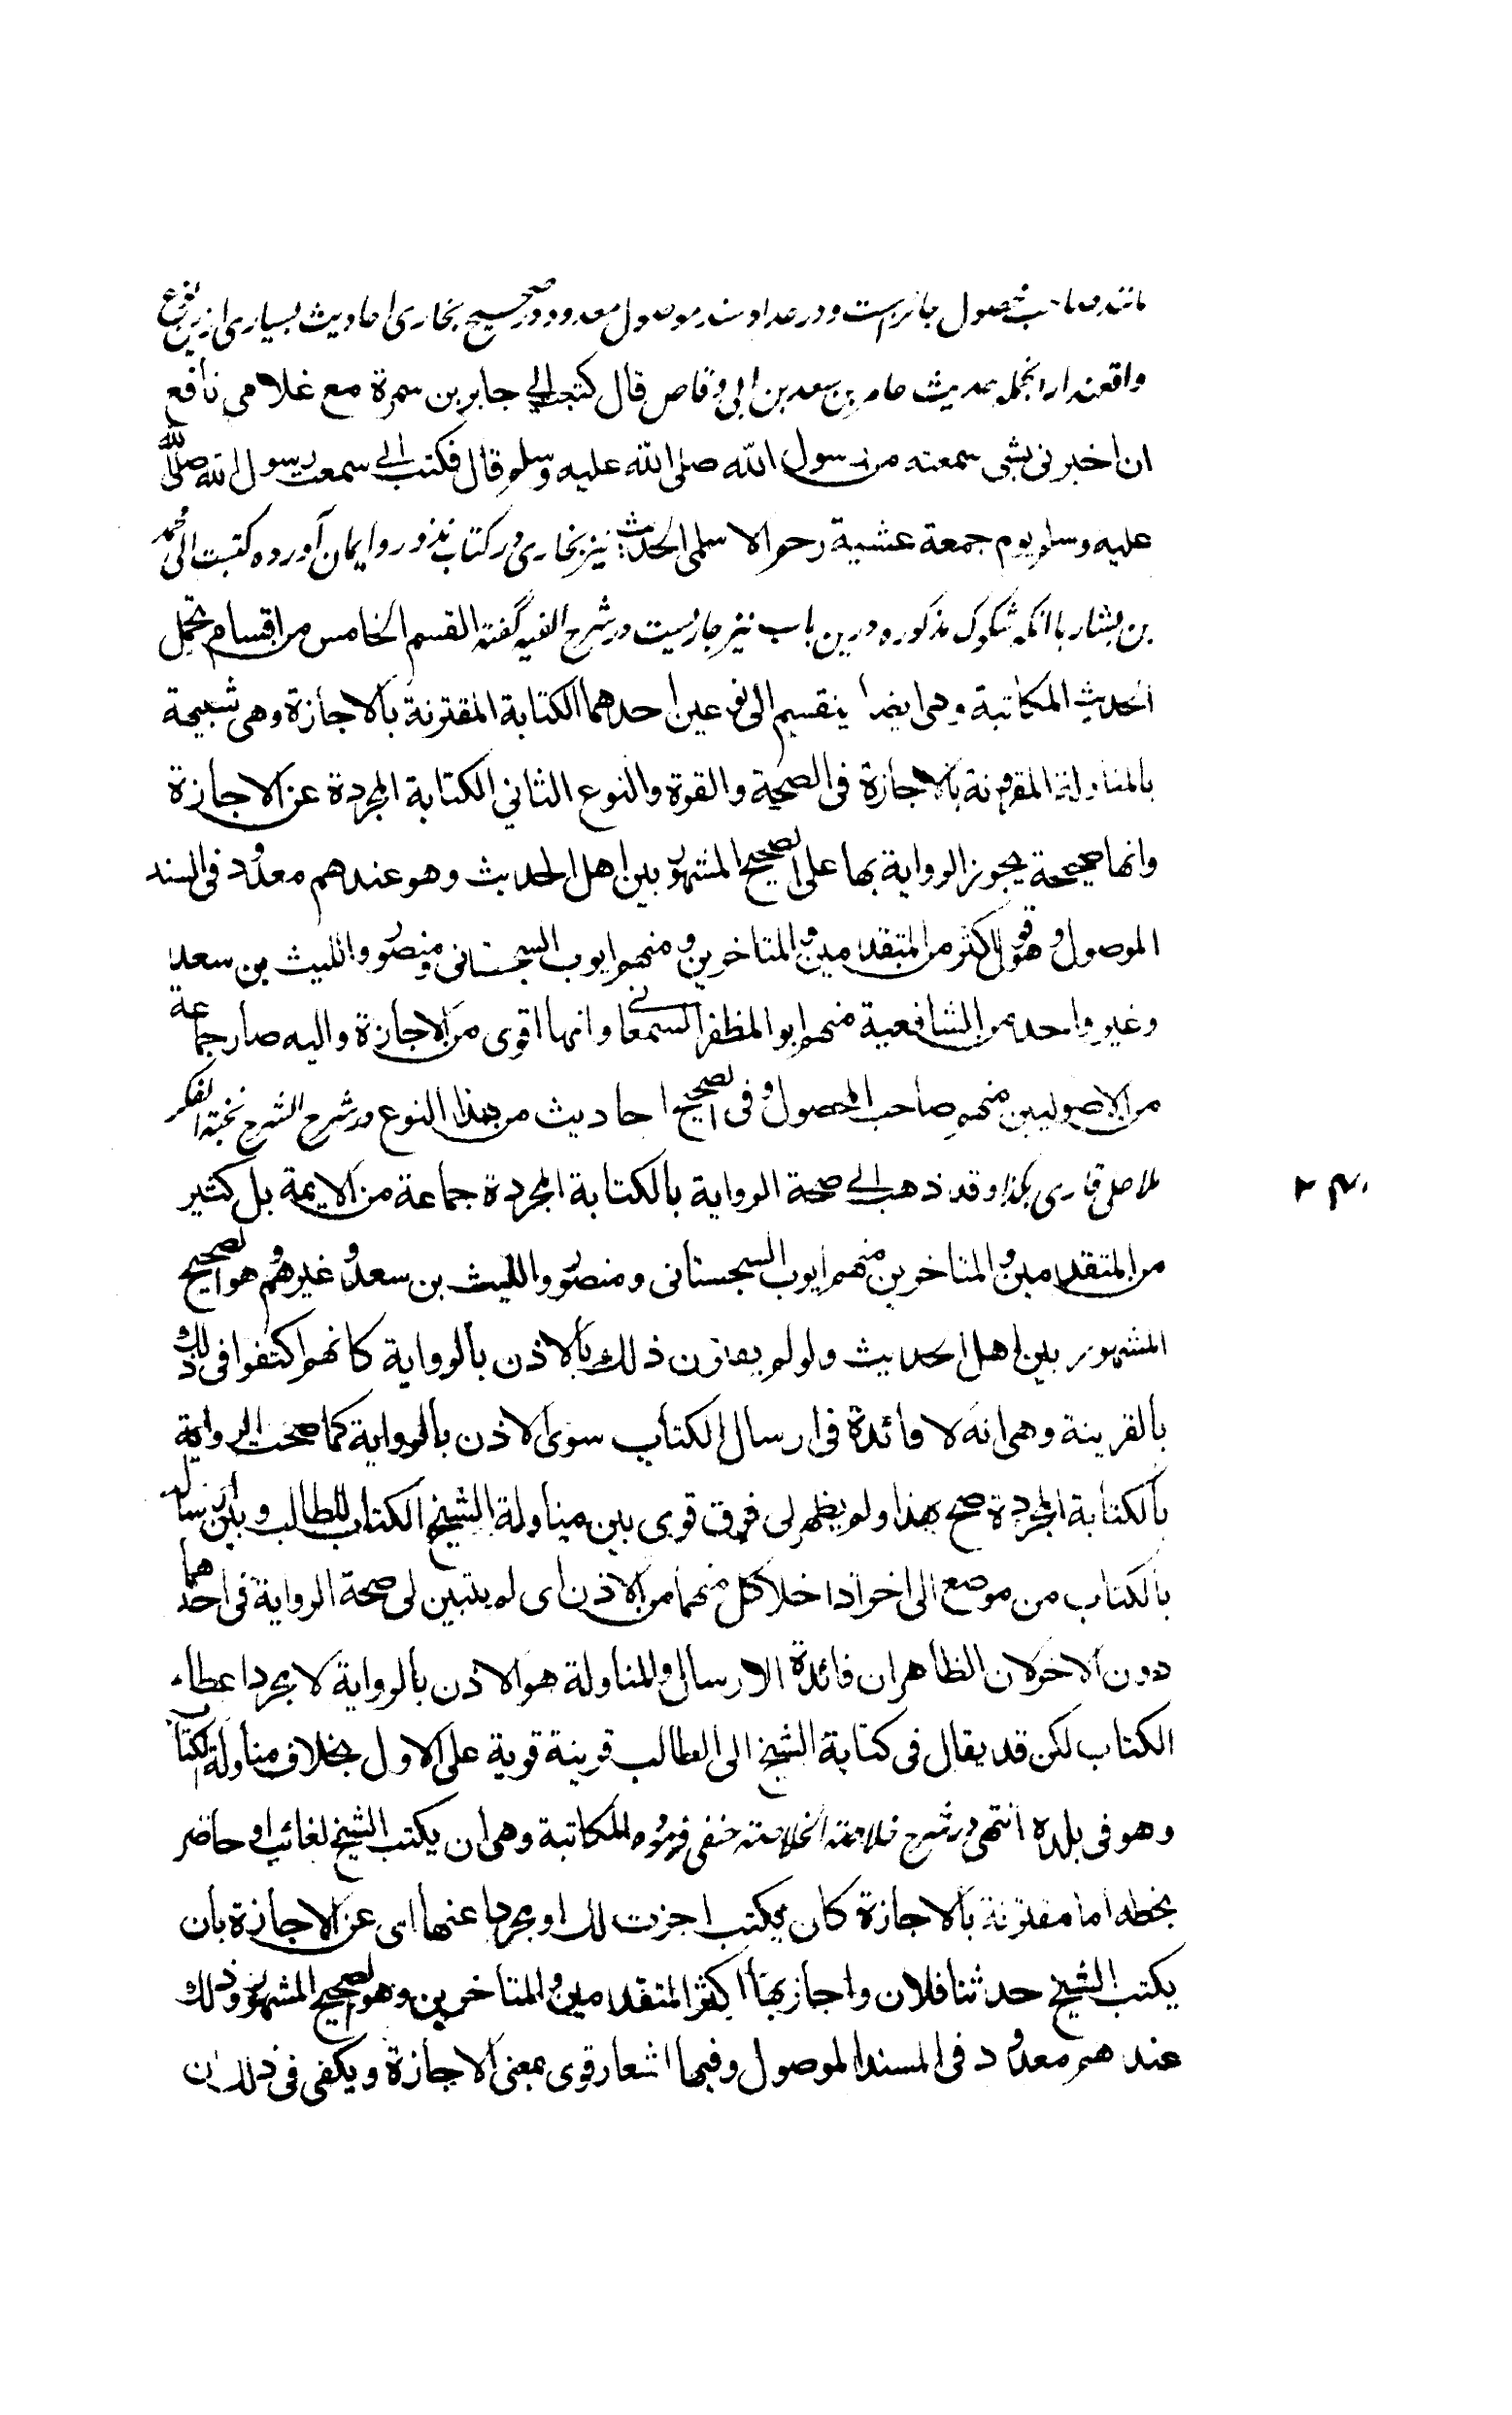 مانند صاحب محصول جائز است و در عداد مسند موصول معدود و در صحیح بخاری احادیث بسیاری ازین نوع
واقعند ازانجمله حدیث عامر بن سعد بن ابی وقاص قال کتبت الی جابر بن سمرة مع غلامی نافع
ان اخبرنی بشی سمعته من رسول الله صلی الله علیه وسلم قال فکتب الی سمعت رسول الله صلی الله
علیه وسلم یوم جمعة عشیة رجم الاسلمی الحدیث نیز بخاری در کتاب نذور و ایمان آورده کتبت الی محمد
بن بشار با آنکه شکوک مذکوره درین باب نیز جاریست در شرح الفیه گفته القسم الخامس من اقسام تحمل
الحدیث المکاتبة وهی ایضا ینقسم الی نوعین احدهما الکتابة المقترنة بالاجازة وهی شبیهة
بالمناولة المقرونة بالاجازة فی الصحة والقوة والنوع الثانی الکتابة المجردة عن الاجازة
وانها صحیحة یجوز الروایة بها علی الصحیح المشهور بین اهل الحدیث وهو عندهم معدود فی المسند
الموصول وهو قول کثیر من المتقدمین والمتاخرین ومنهم ایوب السجستانی ومنصور واللیث بن سعد
وغیر واحد من الشافعیة منهم ابو المظفر السمعانی وانها اقوی من الاجازة والیه صار جماعة
من الاصولیین منهم صاحب المحصول وفی الصحیح احادیث من هذا النوع در شرح الشرح نخبة الفکر
ملا علی قاری هکذا وقد ذهب الی صحة الروایة بالکتابة المجردة جماعة من الایمة بل کثیر
من المتقدمین والمتاخرین منهم ایوب السجستانی ومنصور واللیث بن سعد وغیرهم وهو الصحیح
المشهور بین اهل الحدیث ولو لم یقترن ذلك بالاذن بالروایة کانهم اکتفوا فی ذلك
بالقرینة وهی انه لا فائدة فی ارسال الکتاب سوی الاذن بالروایة کما صحت الروایة
بالکتابة المجردة صح هذا ولم یظهر لی فرق قوی بین مناولة الشیخ الکتاب للطالب وبین ارساله
بالکتاب من موضع الی اخر اذا خلا کل منهما من الاذن ای لم یتبین لی صحة الروایة فی احدهما
دون الاخر لان الظاهر ان فائدة الارسال والمناولة هو الاذن بالروایة لا مجرد اعطاء
الکتاب لکن قد یقال فی کتابة الشیخ الی الطالب قرینة قویة علی الاول بخلاف مناولة الکتاب
وهو فی بلده انتهی در شرح خلاصة الخلاصة حنفی فرموده المکاتبة وهی ان یکتب الشیخ لغائب او حاضر
بخطه اما مقترنة بالاجازة کان یکتب اجزت لك او مجردا عنها ای عن الاجازة بان
یکتب الشیخ حدثنا فلان واجاز بها اکثر المتقدمین والمتاخرین وهو الصحیح المشهور وذلك
عندهم معدود فی المسند الموصول وفیها اشعار قوی بمعنی الاجازة ویکفی فی ذلك ان